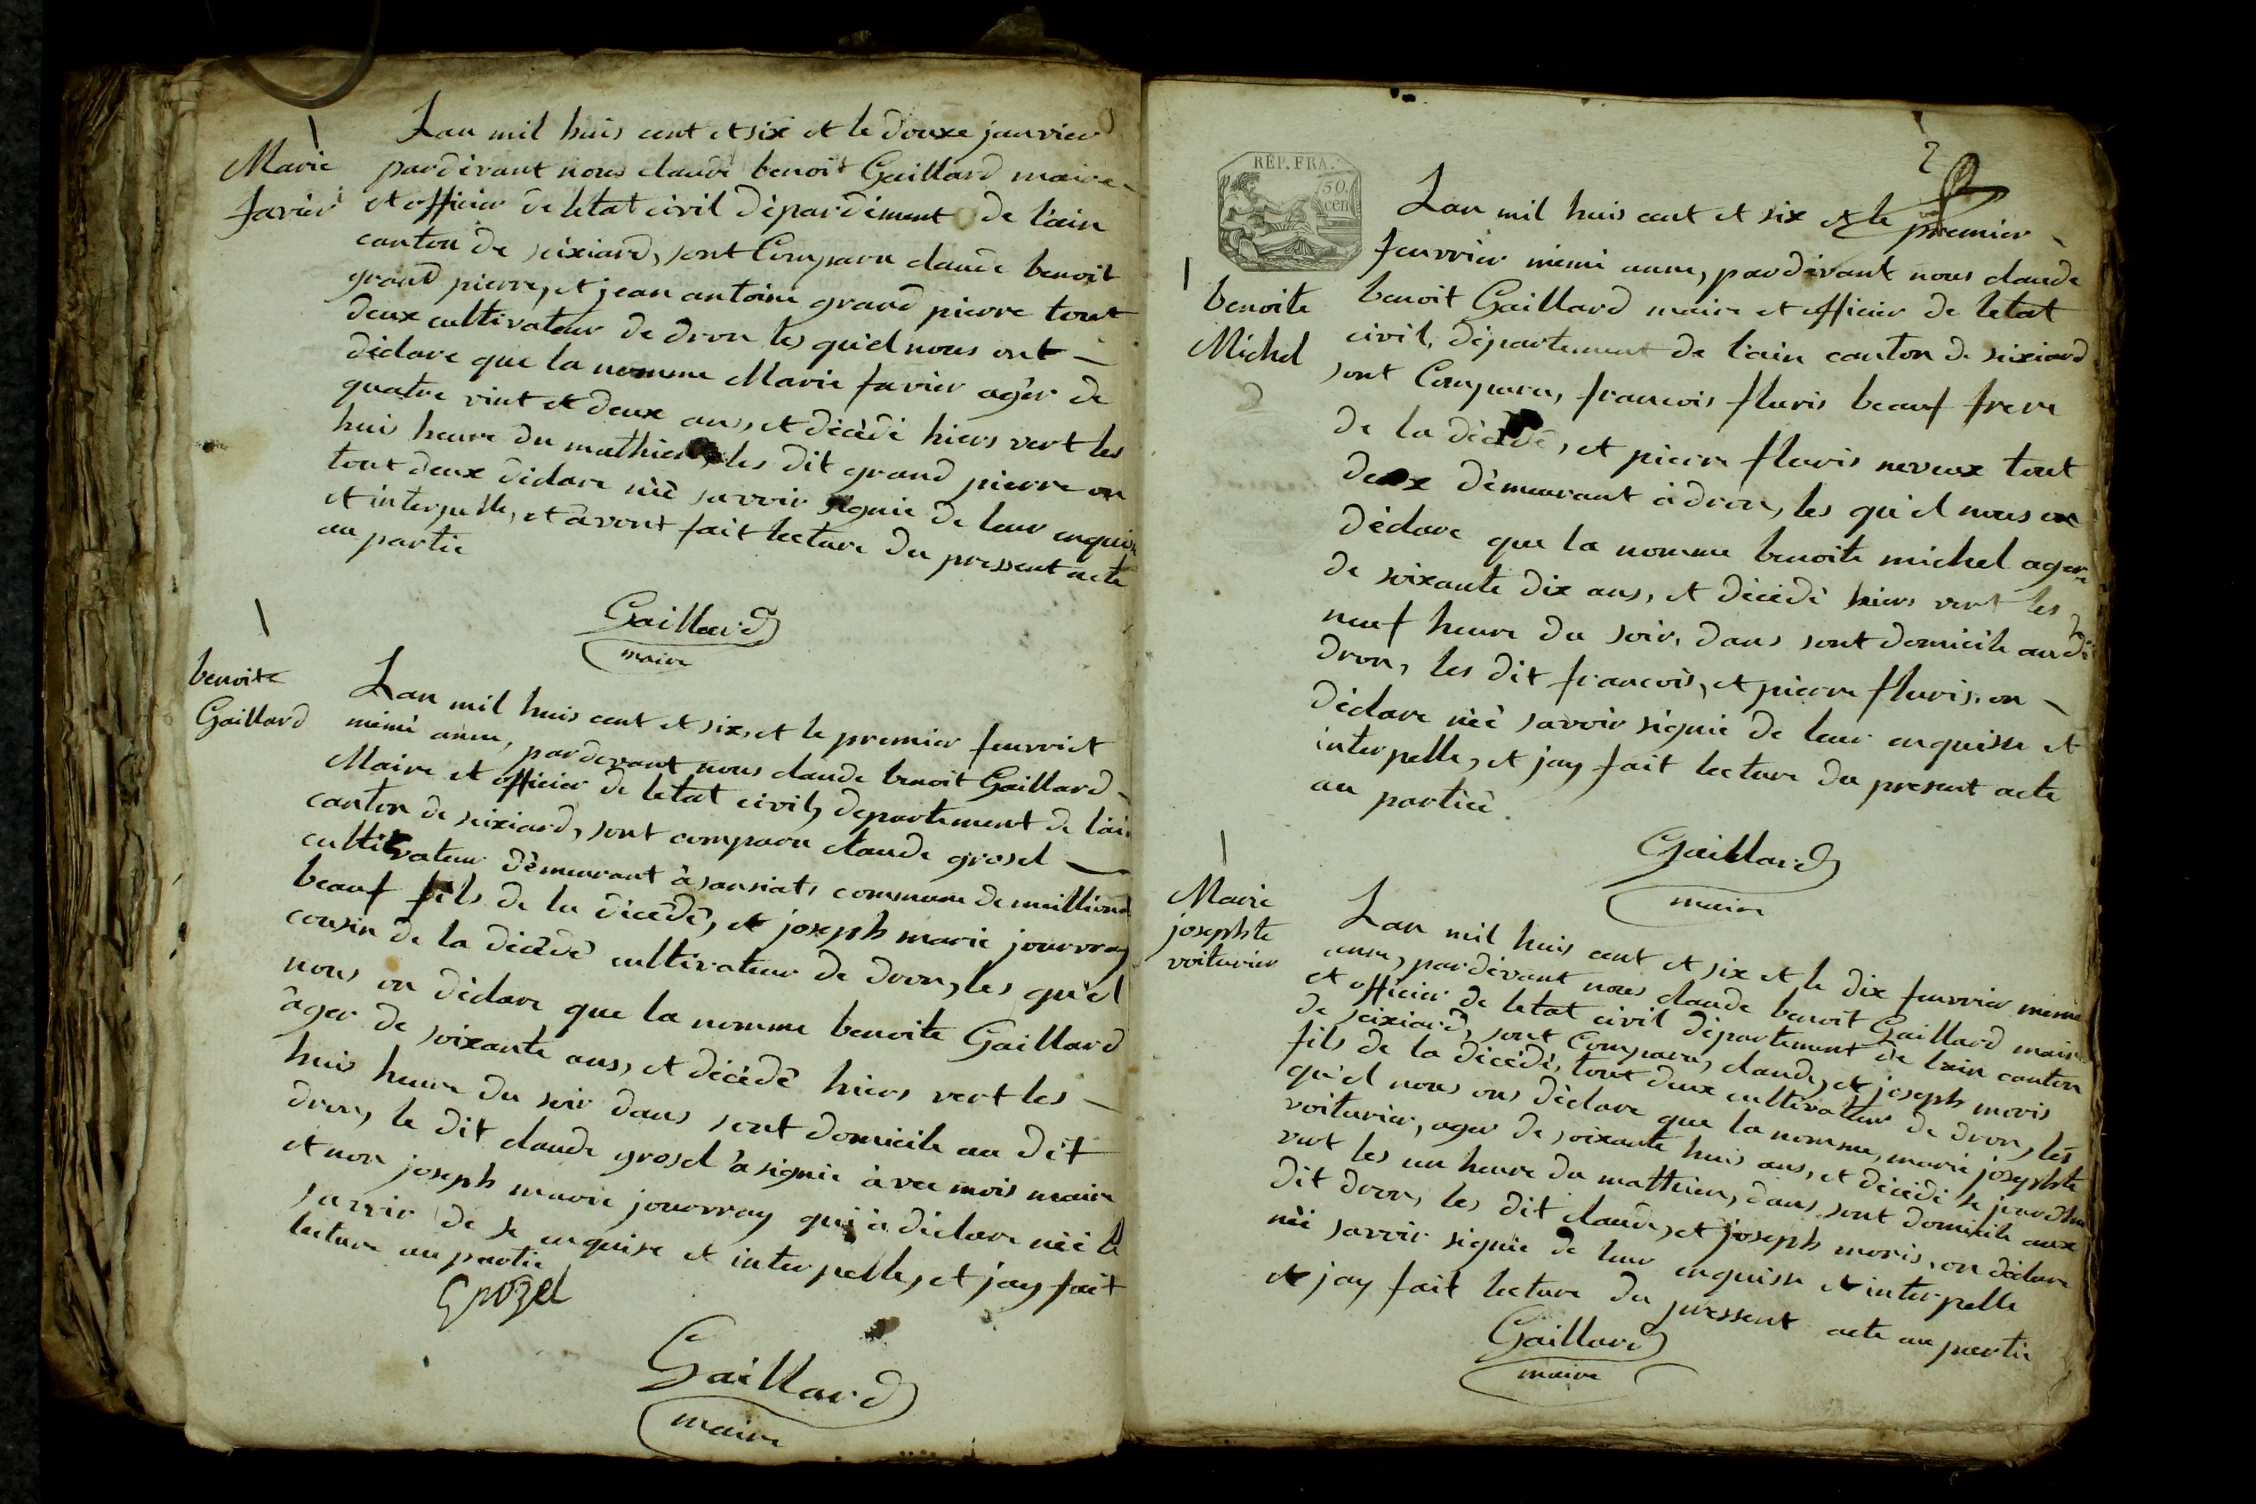 Marie
favier
Lan mil huis cent et six et le douxe janvier
pardevant nous claude benoit Gaillard maire
et officier de letat civil départdement de l'ain
canton de seixiard, sont Comparu claude benoit
grand pierre, et jean antoine grand pierre tout
deux cultivateur de dron les qu'el nous ont
déclare que la nomme Marie favier agèr de
quatre vint et deux ans, et décédé hiers vert les
huis heure du mathien, les dit grand pierre on
tout deux déclare nèè savvoir signie de leur enquise
et interpelle, et âvont fait lecture du pressent acte
au partie
Gaillard
maire
benoite
Gaillard
Lan mil huis cent et six, et le premier feuvriet
mémé anne, pardevant nous claude benoit Gaillard
Maire et officier de letat civil, departement de l'ain
canton de seixiard, sont comparu claude grosel
cultivateur démeurant à sansiat, commune de
beauf fils de la décédé, et joseph marie jourvray
cousin de la décédé cultivateur de dron, les qu'el
nous on déclare que la nomme benoite Gaillard
âger de soixante ans, et décédé hiers vert les
huis heure du soir dans sont domicile au dit
dron, le dit claude grosel à signie à vec mois maire
et non joseph marie jouvrray qui à déclare nèè le
savvoir de se enquise et interpelle, et jay fait
lecture au partie
Grozel
Gaillard
maire
2
RÉP. FRA.
50.
cen
benoite
Michel
Lan mil huis cent et six et le premier
feuvrier mémé anne, pardevant nous claude
benoit Gaillard maire et officier de letat
civil, département de l'ain canton de seixiard
sont Comparu, francois fluris beauf frere
de la décédé, et pierre fluris neveux tout
deux démeurant à dron, les qu'el nous on
déclare que la nomme benoite michel ager
de soixante dix ans, et décédé hiers vert les
neuf heure du soir, dans sont domicile au dit
dron, les dit francois, et pierre fluris, on
déclare nèè savvoir signie de leur enquisse et
interpelle, et jay fait lecture du present acte
au partièè
Gaillard
maire
Marie
josephte
voiturier
Lan mil huis cent et six et le dix feuvrier mémé
anne, pardévant nous claude benoit Gaillard maire
et officier de letat civil département de lain canton
de seixiard, sont Comparu, claude, et joseph moris
fils de la décédé, tout deux cultivateur de dron, les
qu'el nous ons déclare que la nomme, marie josephte
voiturier, ager de soixante huis ans, et décédé
vert les un heure du mathien, dans sont domicile aux
dit dron, les dit claude, et joseph moris, on déclare
nèè savvoir signie de leur enquisse et interpelle
et jay fait lecture du pressent acte au partie
Gaillard
maire